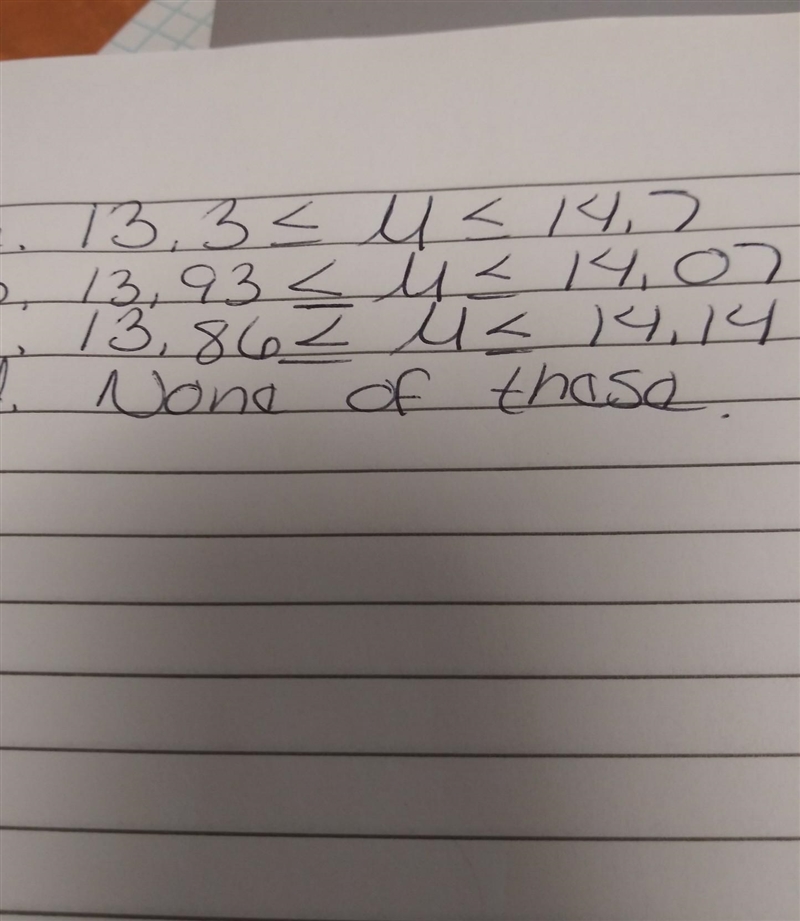 . 13.3 ≤ μ ≤ 14.7
. 13.93 ≤ μ ≤ 14.07
. 13.86 ≤ μ ≤ 14.14
. None of these.